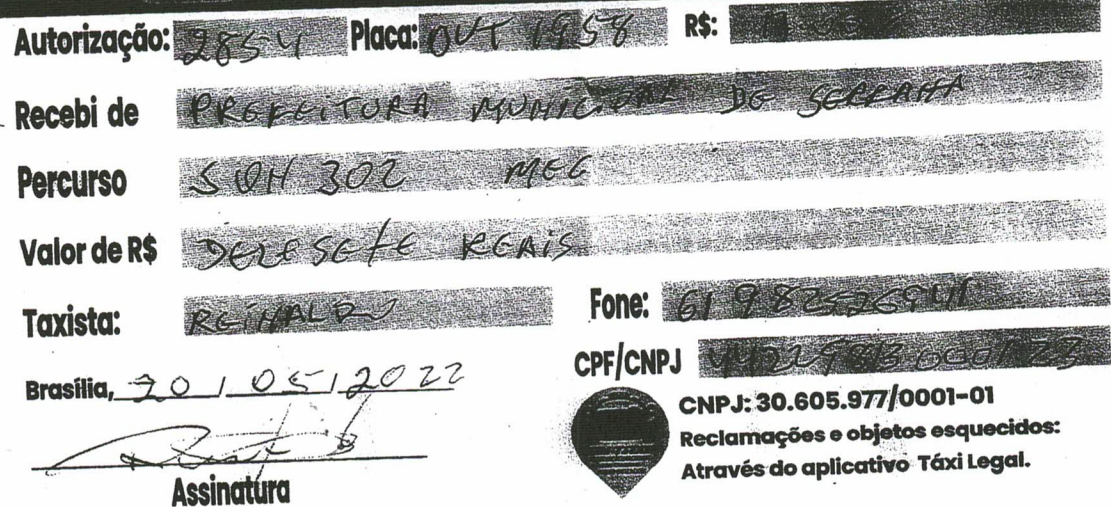 Autorização: 2854 Placa: OVT 1958 R$:
Recebi de PREFEITURA MUNICIPAL DE SERRANA
Percurso SQN 302 MEC
Valor de R$ DEZESETE REAIS
Taxista: REINALDO
Fone: 61 9
CPF/CNPJ
Brasília, 20 / 05 / 2022
Assinatura
CNPJ: 30.605.977/0001-01
Reclamações e objetos esquecidos:
Através do aplicativo Táxi Legal.